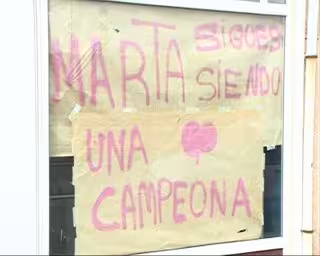 MARTA SIGUES
SIENDO
UNA
CAMPEONA